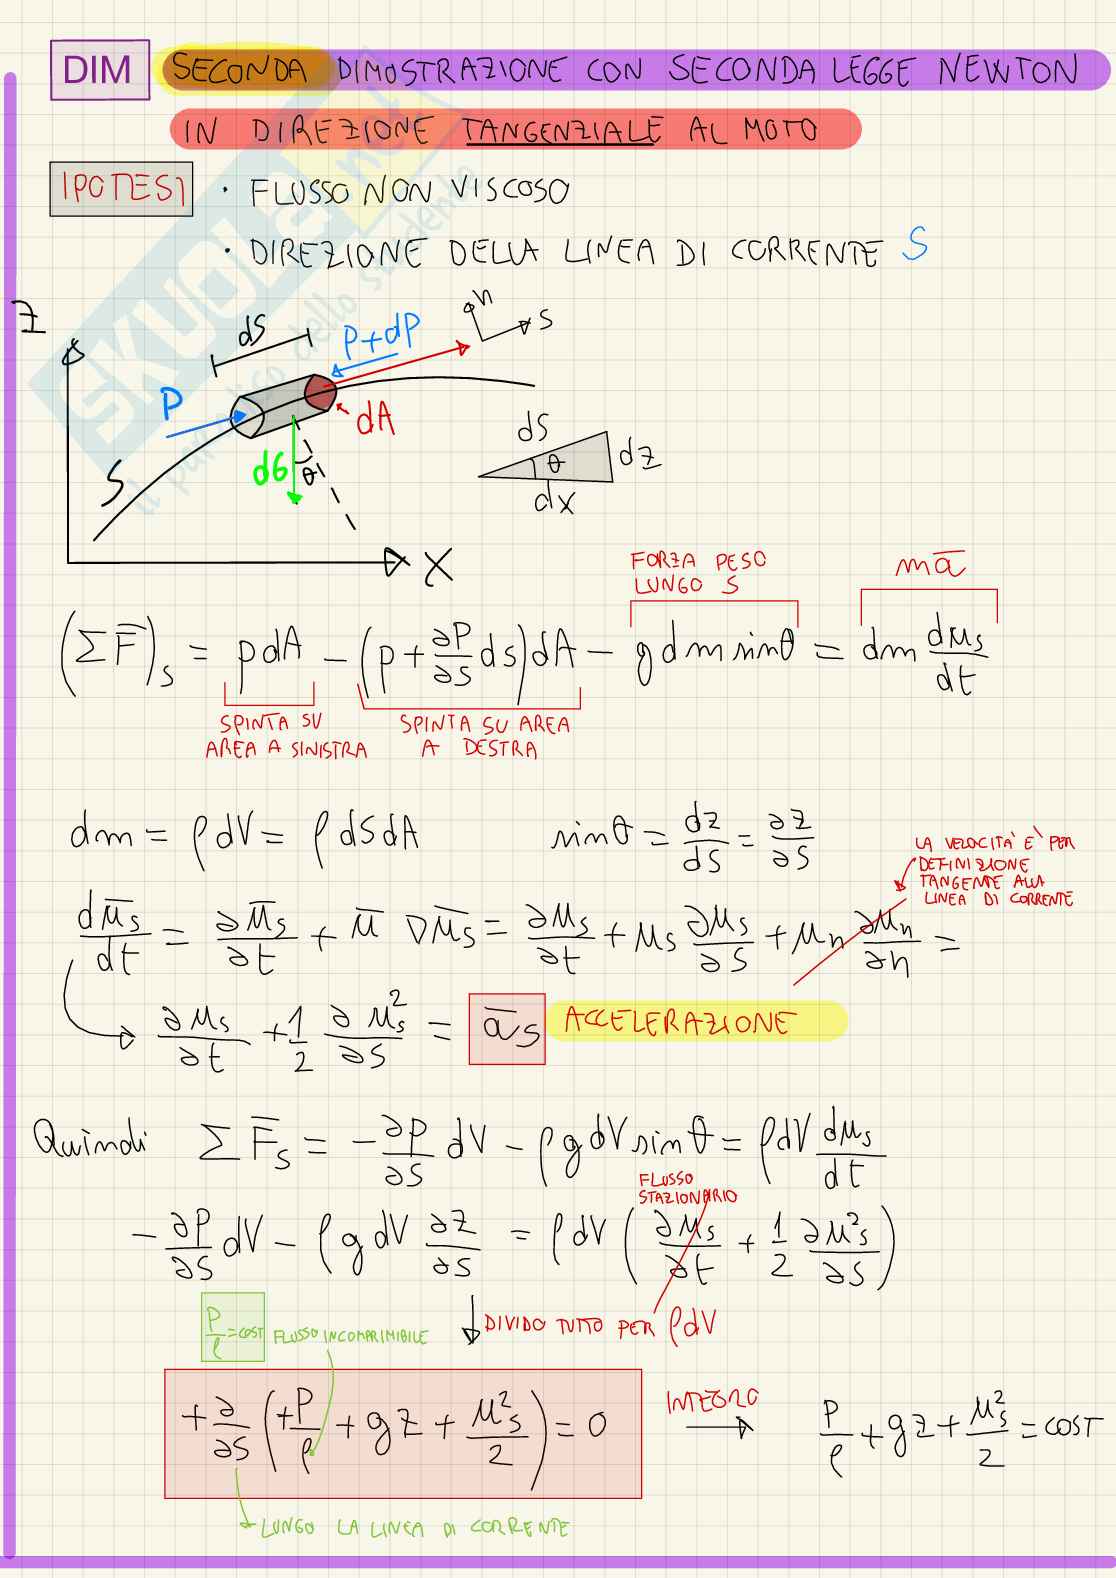 DIM SECONDA DIMOSTRAZIONE CON SECONDA LEGGE NEWTON
IN DIREZIONE TANGENZIALE AL MOTO
IPOTESI · FLUSSO NON VISCOSO
· DIREZIONE DELLA LINEA DI CORRENTE S
SKUOLA.net
il paradiso dello studente
Z
n
s
dS
P+dP
P
dA
dG
θ
S
X
dS
θ
dz
dx
FORZA PESO
LUNGO S
ma̅
(ΣF̅)ₛ = pdA − (p + ∂P/∂S ds)dA − g dm sinθ = dm dμₛ/dt
SPINTA SU
AREA A SINISTRA
SPINTA SU AREA
A DESTRA
dm = ρdV = ρdSdA
sinθ = dz/dS = ∂z/∂S
LA VELOCITÀ È PER
DEFINIZIONE
TANGENTE ALLA
LINEA DI CORRENTE
dμ̅ₛ/dt = ∂μ̅ₛ/∂t + μ̅ ∇μ̅ₛ = ∂μₛ/∂t + μₛ ∂μₛ/∂S + μₙ ∂μₙ/∂n =
∂μₛ/∂t + 1/2 ∂μₛ²/∂S = a̅ₛ ACCELERAZIONE
Quindi ΣF̅ₛ = −∂P/∂S dV − ρgdV sinθ = ρdV dμₛ/dt
FLUSSO
STAZIONARIO
−∂P/∂S dV − ρg dV ∂z/∂S = ρdV (∂μₛ/∂t + 1/2 ∂μ²ₛ/∂S)
DIVIDO TUTTO PER ρdV
P/ρ = COST FLUSSO INCOMPRIMIBILE
+∂/∂S (+P/ρ + gz + μ²ₛ/2) = 0
INTEGRO
P/ρ + gz + μ²ₛ/2 = COST
LUNGO LA LINEA DI CORRENTE